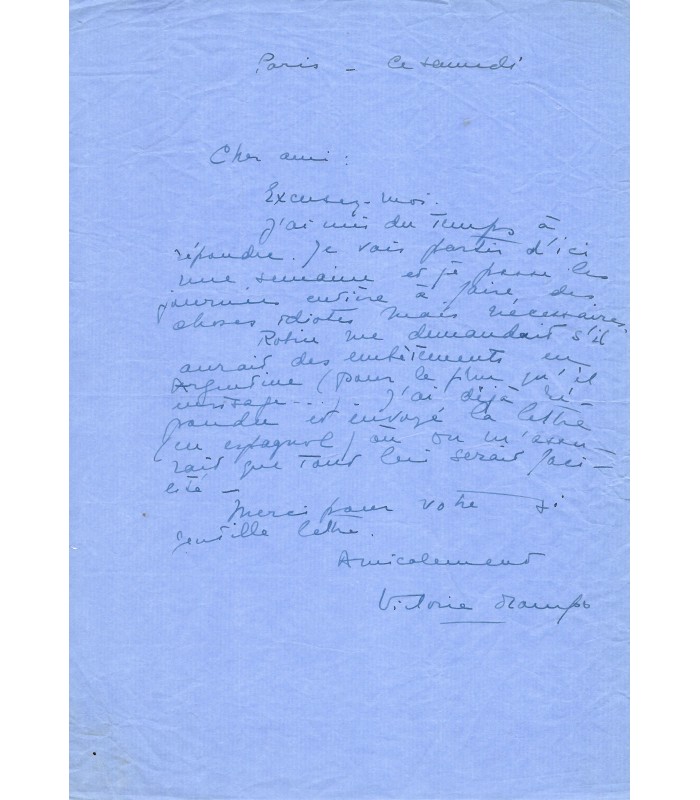 Paris - Ce samedi
Cher ami :
Excusez-moi.
J'ai mis du temps à
répondre. Je vais partir d'ici
une semaine et je passe les
journées entière à faire des
choses idiotes mais nécessaires.
Robin me demandait s'il
aurait des embêtements en
Argentine (pour le film qu'il
envisage...). J'ai déjà ré-
pondu et envoyé la lettre
(en espagnol) où on m'assu-
rait que tout lui serait faci-
lité -
Merci pour votre si
gentille lettre.
Amicalement
Victoria Ocampo